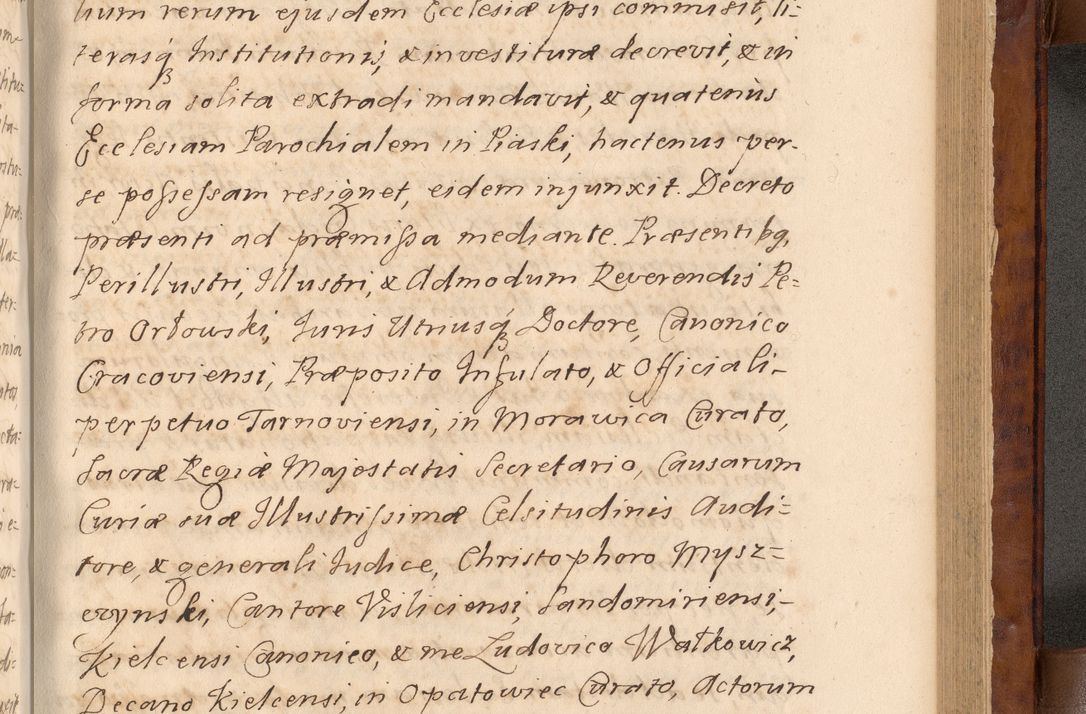 lium rerum ejusdem Ecclesiæ ipsi commisit, li-
terasq́ꝫ Institutionis, & investituræ decrevit, & in
forma solita extradi mandavit, & quatenùs
Ecclesiam Parochialem in Piaski, hactenus per-
se poſseſsam resignet, eidem injunxit. Decreto
præsenti ad præmiſsa mediante. Præsentibꝯ,
Perillustri, Illustri, & Admodum Reverendis Pe=
tro Orłowski, Juris Utriusq́ꝫ Doctore, Canonico
Cracoviensi, Præposito Infulato, & Officiali-
perpetuo Tarnoviensi, in Morawica Curato,
Sacræ Regiæ Majestatis Secretario, Causarum
Curiæ suæ Illustriſsimæ Celsitudinis Audi=
tore, & generali Judice, Christophoro Mysz=
czynski, Cantore Visliciensi, Sandomiriensi,-
Kielcensi Canonico, & me Ludovico Wałkowicz,
Decano Kielcensi, in Opatowiec Curato, Actorum